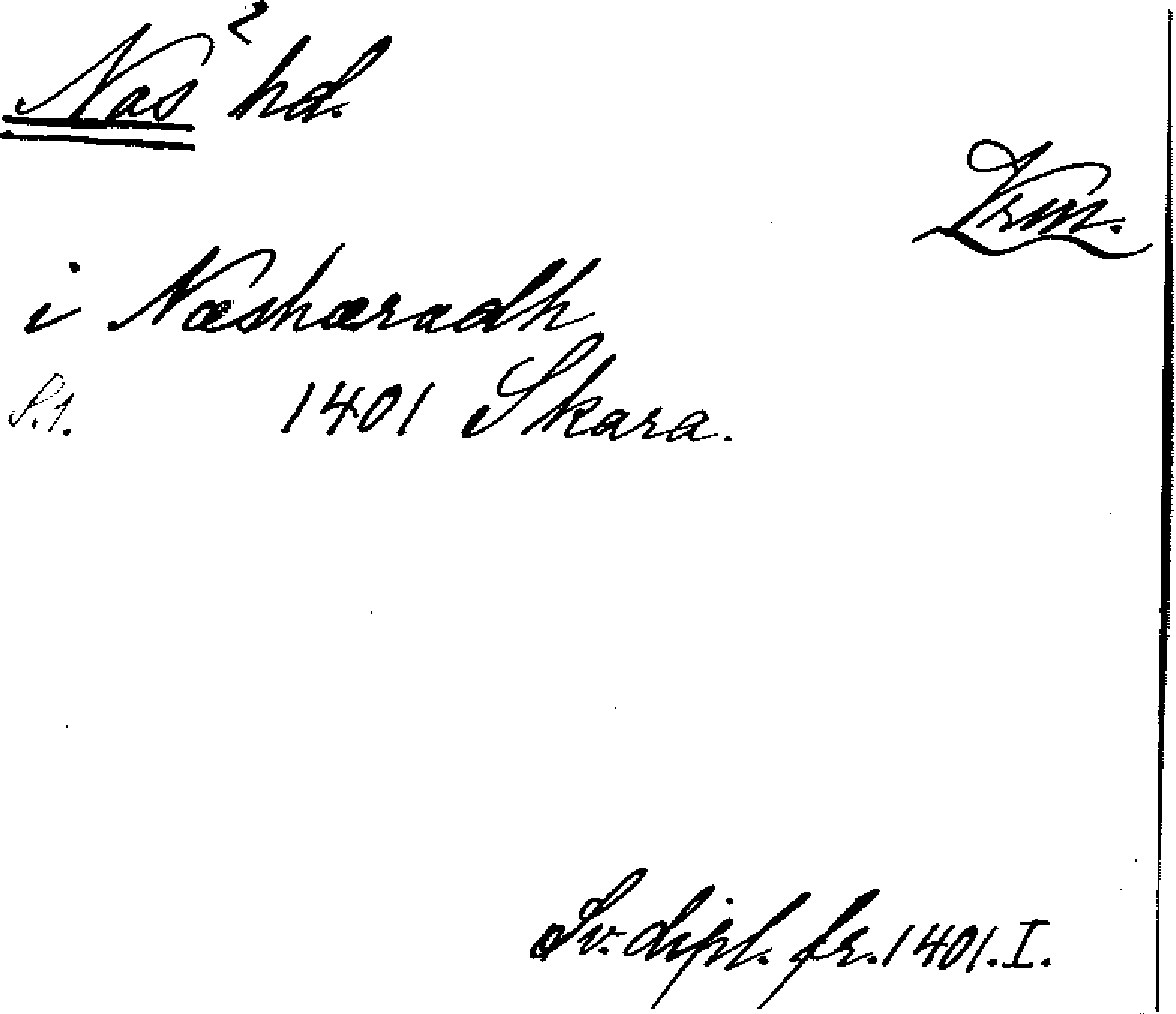 Näs² hd.
Vrm.
i Næshæradh
S. 1. 1401 Skara.
Sv. dipl. fr. 1401. I.